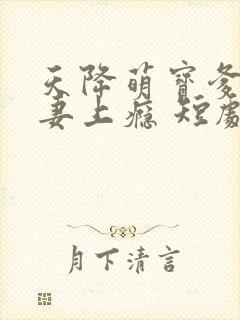 天降萌宝爹
妻上瘾 短劇
月下清言